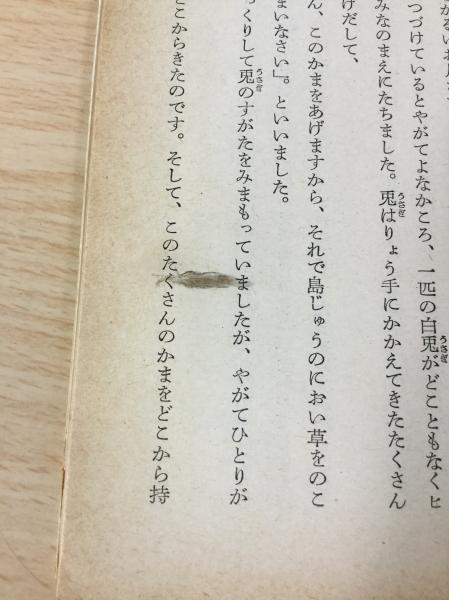 かるいお月
つづけているとやがてよなかころ、一匹の白兎がどこともなくヒ
みなのまえにたちました。兎はりょう手にかかえてきたたくさん
けだして、
ん、このかまをあげますから、それで島じゅうのにおい草をのこ
まいなさい」。といいました。
っくりして兎のすがたをみまもっていましたが、やがてひとりが
どこからきたのです。そして、このたくさんのかまをどこから持